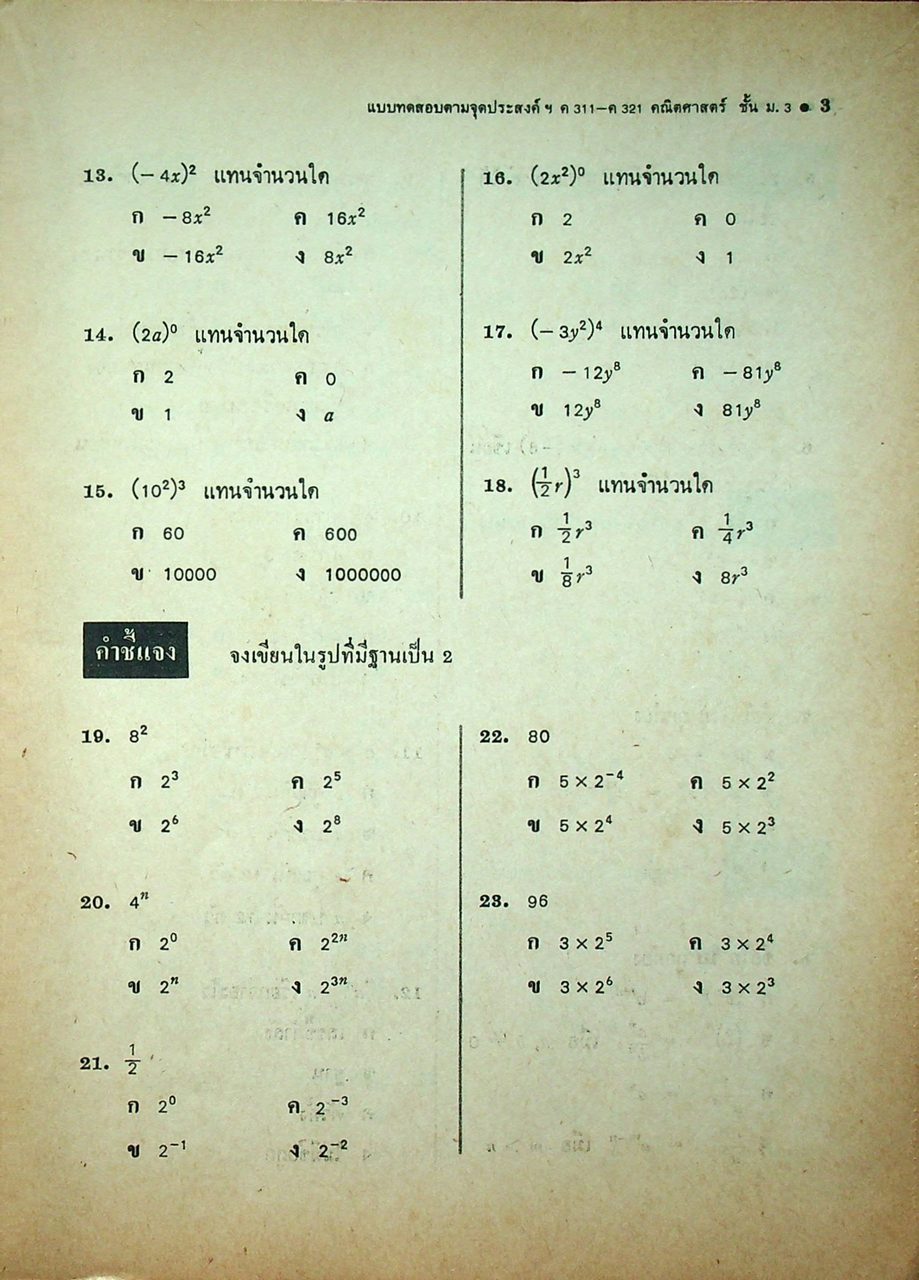 แบบทดสอบตามจุดประสงค์ ฯ ค 311–ค 321 คณิตศาสตร์ ชั้น ม. 3 ● 3
13. (– 4x)² แทนจำนวนใด
ก – 8x² ค 16x²
ข – 16x² ง 8x²
14. (2a)⁰ แทนจำนวนใด
ก 2 ค 0
ข 1 ง a
15. (10²)³ แทนจำนวนใด
ก 60 ค 600
ข 10000 ง 1000000
16. (2x²)⁰ แทนจำนวนใด
ก 2 ค 0
ข 2x² ง 1
17. (– 3y²)⁴ แทนจำนวนใด
ก – 12y⁸ ค – 81y⁸
ข 12y⁸ ง 81y⁸
18. (½r)³ แทนจำนวนใด
ก ½r³ ค ¼r³
ข ⅛r³ ง 8r³
คำชี้แจง จงเขียนในรูปที่มีฐานเป็น 2
19. 8²
ก 2³ ค 2⁵
ข 2⁶ ง 2⁸
20. 4ⁿ
ก 2⁰ ค 2²ⁿ
ข 2ⁿ ง 2³ⁿ
21. ½
ก 2⁰ ค 2⁻³
ข 2⁻¹ ง 2⁻²
22. 80
ก 5 × 2⁻⁴ ค 5 × 2²
ข 5 × 2⁴ ง 5 × 2³
23. 96
ก 3 × 2⁵ ค 3 × 2⁴
ข 3 × 2⁶ ง 3 × 2³